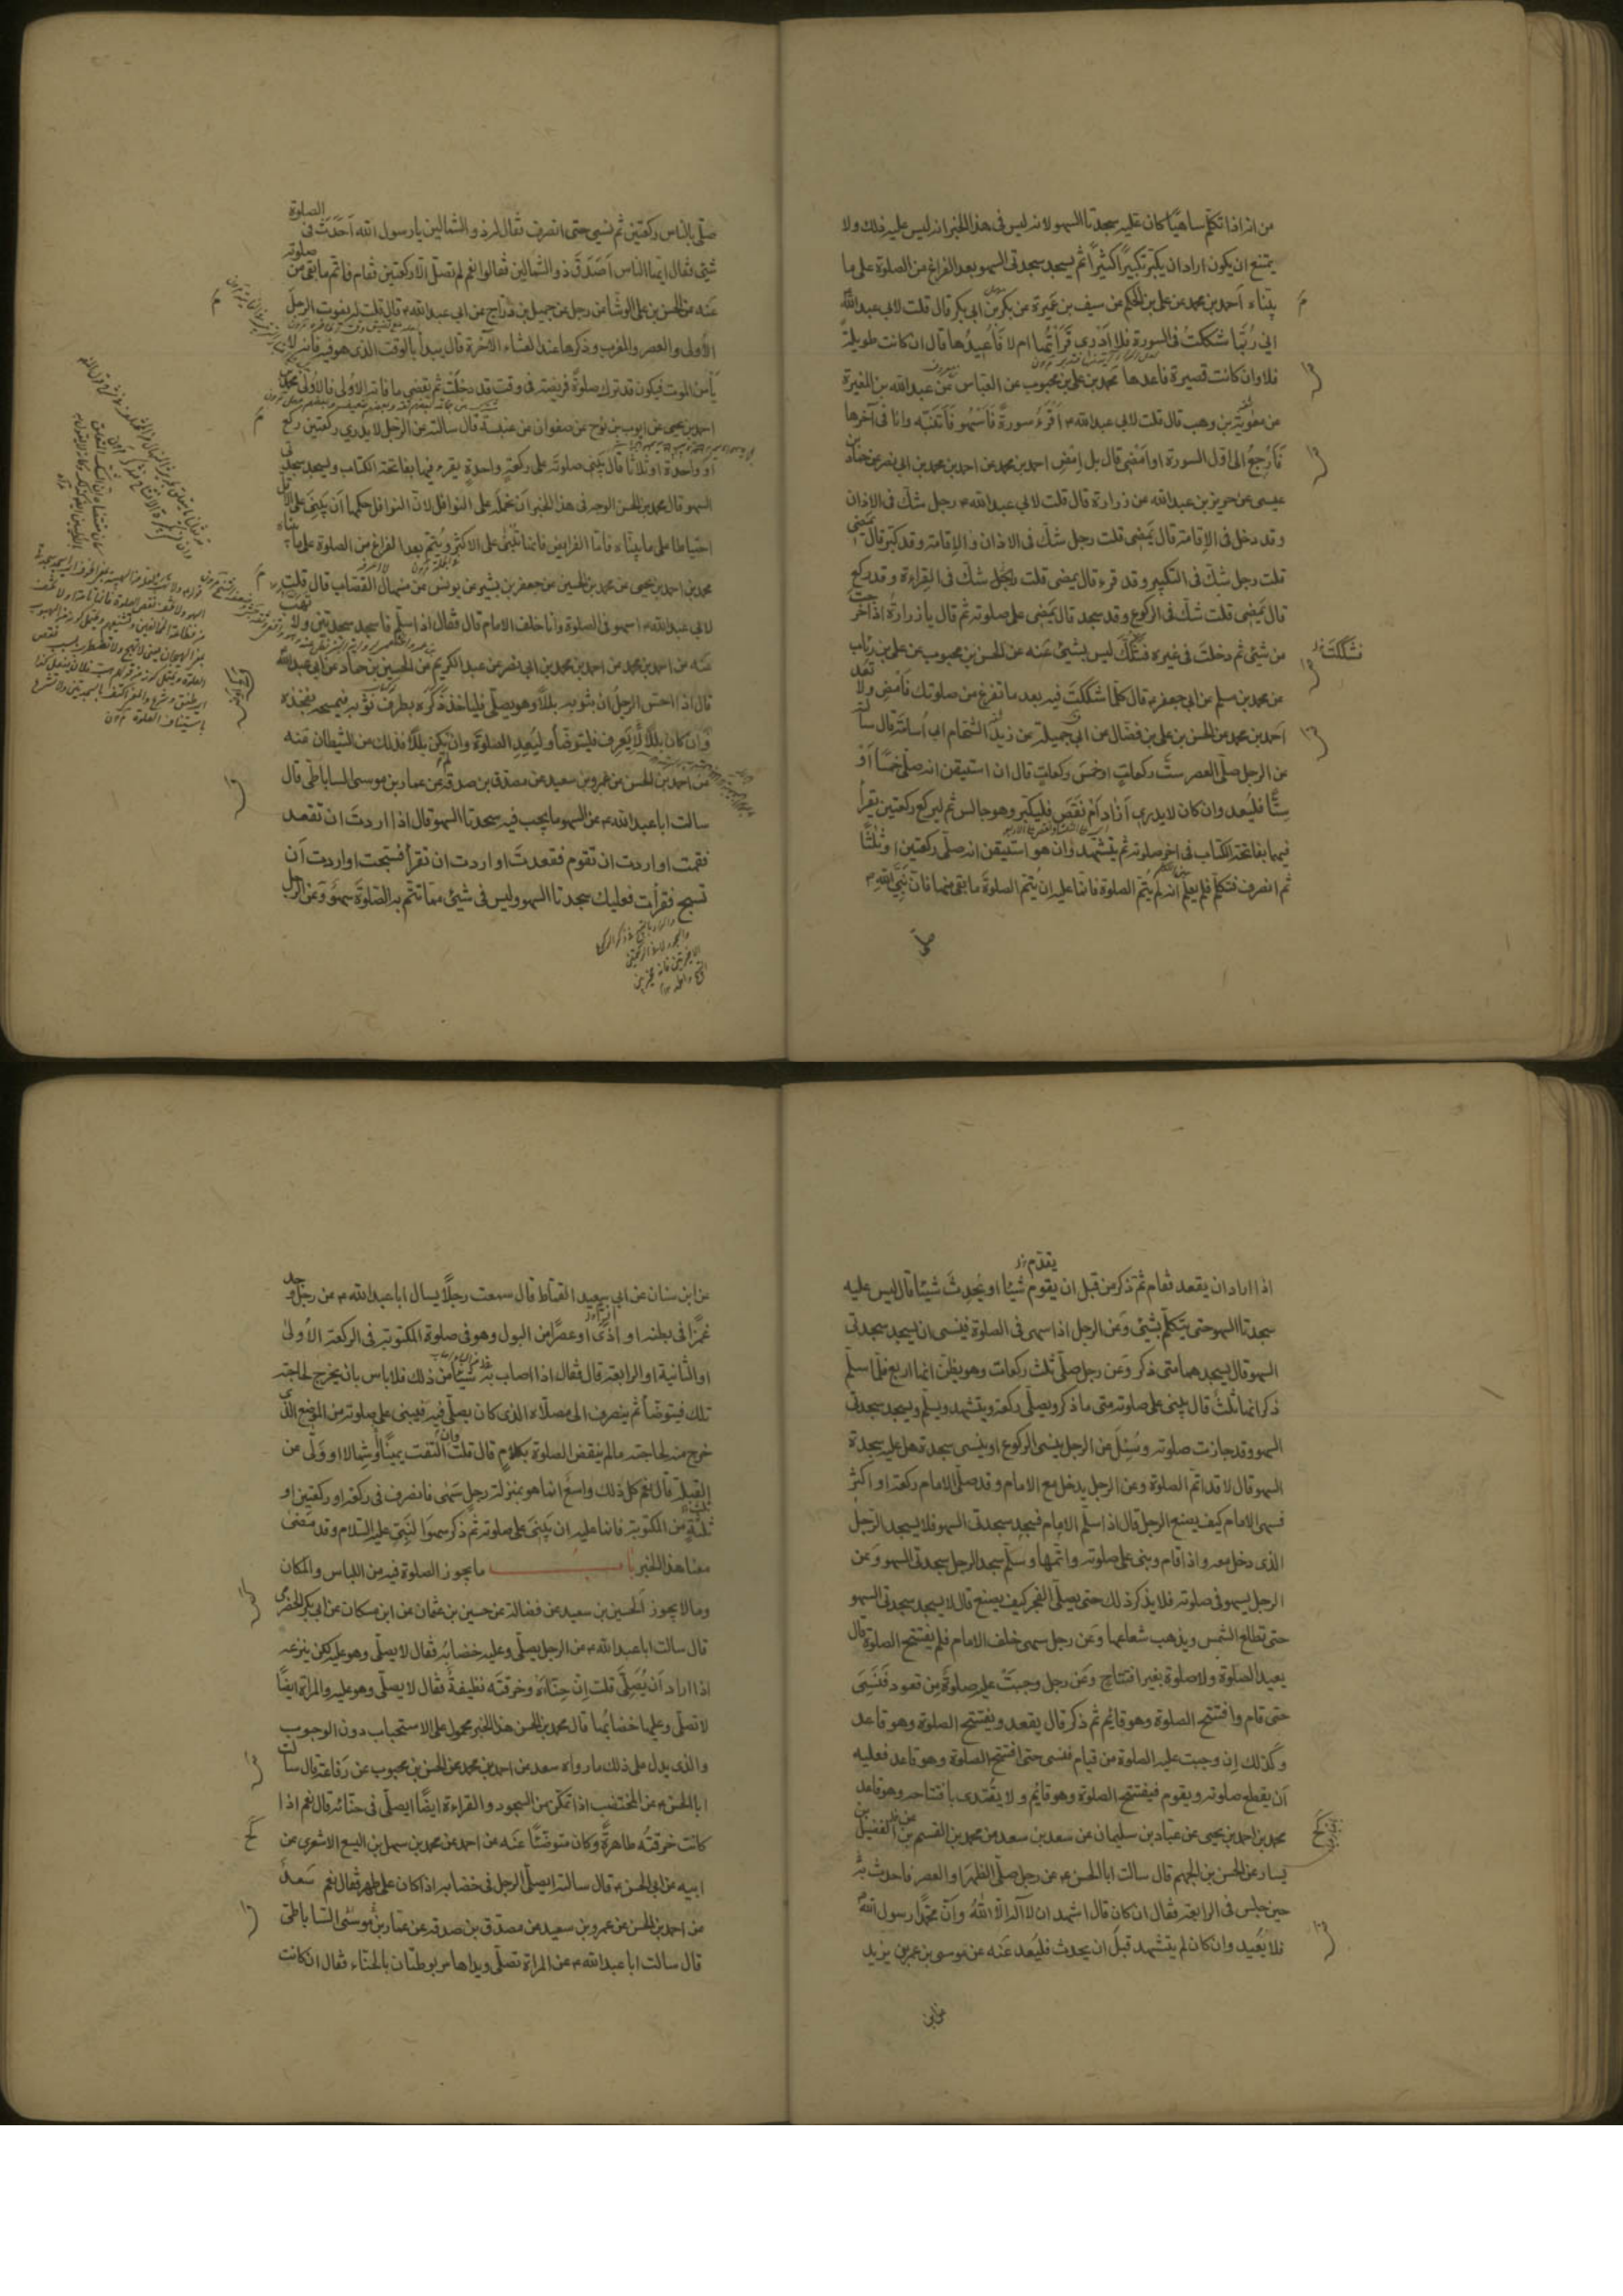 من انه اذا تكلم ساهيًا كان عليه سجدتا السهو لانه ليس في هذا الخبر انه ليس عليه ذلك ولا
يمتنع ان يكون اراد ان يكبر تكبيرًا كثيرًا ثم يسجد سجدتي السهو بعد الفراغ من الصلوة على ما
بيّناه احمد بن محمد عن علي بن الحكم عن سيف بن عميرة عن بكر بن ابي بكر قال قلت لابي عبد الله
اني ربّما شككتُ في السورة فلا ادري قرأتُها ام لا فأُعيدُها قال ان كانت طويلة
فلا وان كانت قصيرة فاعدها محمد بن علي بن محبوب عن العباس عن عبد الله بن المغيرة
عن معوية بن وهب قال قلت لابي عبد الله ع اَقْرَءُ سورةً فَاَسْهُو فَاَتَنَبّه وانا في آخرها
فَاَرْجِعُ الى اوّل السورة او اَمْضي قال بل اِمْضِ احمد بن محمد عن احمد بن محمد بن ابي نصر عن حماد بن
عيسى عن حريز بن عبد الله عن زرارة قال قلت لابي عبد الله ع رجل شكّ في الاذان
وقد دخل في الاقامة قال يَمضي قلت رجل شكّ في الاذان والاقامة وقد كبّر قال يَمضي
قلت رجل شكّ في التكبير وقد قرء قال يمضي قلت رجل شكّ في القِراءة وقد ركع
قال يَمضي قلت شكّ في الركوع وقد سجد قال يَمضي على صلوته ثم قال يا زرارة اذا خرجت
من شئ ثم دخلتَ في غيره فشكّك ليس بشئ عَنه عن الحسن بن محبوب عن علي بن رئاب
فشككتَ
عن محمد بن مسلم عن ابي جعفر ع قال كلّما شككتَ فيه بعد ما تفرغ من صلوتك فَامْضِ ولا تعد
احمد بن محمد عن الحسن بن علي بن فضّال عن ابي جميلة عن زيد الشحّام ابي اُسامة قال سألته
عن الرجل صلّى العصر ستّ ركعاتٍ او خمسَ ركعاتٍ قال ان استيقن انه صلّى خمسًا اَوْ
سِتًّا فليُعد وان كان لا يدري اَزادَ اَمْ نَقَصَ فليكبّر وهو جالس ثم ليركع ركعتين يقرأ
فيهما بفاتحة الكتاب في اخر صلوته ثم يتشهد وان هو استيقن انه صلّى ركعتين او ثلثًا
ثم انصرف فتكلّم فلم يعلم انه لم يُتمّ الصلوة فانّما عليه ان يُتمّ الصلوةَ ما بقي منها فانّ نَبيّ الله ص
صلّى
صلّى بالناس ركعتين ثم نسي حتى انصرف فقال له ذو الشمالين يا رسول الله اَحَدَثَ في الصلوة
شئ فقال ايها الناس اَصَدَقَ ذو الشمالين فقالوا نعم لم تصلّ الّا ركعتين فقام فاتم ما بقي من صلوته
عَنه عن الحسن بن علي الوشّا عن رجل عن جميل بن درّاج عن ابي عبد الله ع قال قلت له يفوت الرجلَ
الاُولى والعصر والمغرب وذكرها عند العشاء الآخرة قال يبدأ بالوقت الذي هو فيه فانه لا
يأمن الموت فيكون قد ترك صلوةً فريضة في وقت قد دخلت ثم يقضي ما فاته الاُولى فالاُولى محمد بن
احمد بن يحيى عن ايوب بن نوح عن صفوان عن عنبسة قال سالته عن الرجل لا يدري ركعتين ركع
او واحدة او ثلاثًا قال يَبْني صلوتَه على ركعةٍ واحدةٍ يقرء فيها بفاتحة الكتاب ويسجد سجدتي
السهو قال محمد بن الحسن الوجه في هذا الخبر اَن نحمله على النوافل لانّ النوافل حكمها اَن يَبنيَ على الاقل
احتياطا على ما بيّناه فامّا الفرايض فانما يبني على الاكثر ويُتمّ بعد الفراغ من الصلوة على ما بيّناه
محمد بن احمد بن يحيى عن محمد بن الحسين عن جعفر بن بشير عن يونس عن منهال القصّاب قال قلت
لابي عبد الله ع اسهو في الصلوة وانا خلف الامام قال فقال اذا سلّم فاسجد سجدتين ولا تهب
عَنه عن احمد بن محمد عن احمد بن محمد بن ابي نصر عن عبد الكريم عن الحسين بن حماد عن ابي عبد الله
قال اذا احسّ الرجلُ ان بثوبه بللًا وهو يصلّي فلياخذ ذَكَرَه بطرف ثوبه فيمسحه بفخذه
وَاِن كان بللًا يَعرِف فليتوضّأ وليُعِدِ الصلوةَ وان لم يكن بللًا فذلك من الشيطان عَنه
عن احمد بن الحسن عن عمرو بن سعيد عن مصدق بن صدقة عن عمار بن موسى الساباطي قال
سالت ابا عبد الله ع عن السهو ما يجب فيه سجدتا السهو قال اذا اردتَ ان تقعد
فقمت او اردت ان تقوم فقعدتَ او اردت ان تقرأ فسبّحت او اردت اَن
تسبح فقرأت فعليك سجدتا السهو وليس في شئ ممّا تتمّ به الصّلوة سهوٌ وَعن الرجل
اذا اراد ان يقعد فقام ثم ذكر من قبل ان يقوم شيئا او يُحدِثَ شيئا قال ليس عليه
يقدم
سجدتا السهو حتى يتكلّم بشئ وَعن الرجل اذا سهى في الصلوة فينسى ان يسجد سجدتي
السهو قال يسجدهما متى ذكر وَعن رجل صلّى ثلث ركعات وهو يظنّ انها اربع فلمّا سلّم
ذكر انها ثلثَ قال يبني على صلوته متى ما ذكر ويصلّي ركعة ويتشهد ويسلّم ويسجد سجدتي
السهو وقد جازت صلوته وسُئِلَ عن الرجل ينسى الركوع او ينسى سجدة هل عليه سجدة
السهو قال لا قد اتمّ الصلوة وعن الرجل يدخل مع الامام وقد صلّى الامام ركعة او اكثر
فسهى الامام كيف يصنع الرجل قال اذا سلّم الامام فسجد سجدتي السهو فلا يسجد الرجل
الذي دخل معه واذا قام وبنى على صلوته واتمّها وسلّم سجد الرجل سجدتي السهو وَعن
الرجل يسهو في صلوته فلا يذكر ذلك حتى يصلّي الفجر كيف يصنع قال لا يسجد سجدتي السهو
حتى تطلع الشمس ويذهب شعاعها وَعن رجل سهى خلف الامام فلم يفتتح الصلوة قال
يعيد الصلوة ولا صلوة بغير افتتاح وَعن رجل وجبتْ عليه صلوةٌ من قعود فَنَسِيَ
حتى قام وافتتح الصلوة وهو قائم ثم ذكر قال يقعد ويفتتح الصلوة وهو قاعد
وكذلك اِن وجبت عليه الصلوة من قيام فنسى حتى افتتح الصلوة وهو قاعد فعليه
اَن يقطع صلوته ويقوم فيفتتح الصلوة وهو قائم ولا يقتدي بافتتاحه وهو قاعد
محمد بن احمد بن يحيى عن عباد بن سليمان عن سعد بن سعد عن محمد بن القسم بن الفضيل بن
يسار عن الحسن بن الجهم قال سالت ابا الحسن ع عن رجل صلّى الظهر او العصر فاحدث
حين جلس في الرابعة فقال ان كان قال اشهد ان لا اله الّا اللهُ وانّ محمّدًا رسول الله
فلا يُعيد وان كان لم يتشهد قبل ان يحدث فليُعد عَنه عن موسى بن عمر بن يزيد
عن ابن
عن ابن سنان عن ابي سعيد القمّاط قال سمعت رجلًا يسال ابا عبد الله ع عن رجل وجد
غمزًا في بطنه او اَذًى او عصرًا من البول وهو في صلوة المكتوبة في الركعة الاُولى
او الثانية او الرابعة قال فقال اذا اصاب شيئًا من ذلك فلا باس بان يخرج لحاجته
تلك فيتوضّأ ثم ينصرف الى مصلّاه الذي كان يصلّي فيه فيبني على صلوته من الموضع الذي
خرج منه لحاجته ما لم ينقض الصلوة بكلامٍ قال قلت وان التفت يمينًا او شمالا او وَلّى عن
القبلة قال نعم كلّ ذلك واسع انما هو بمنزلة رجلٍ سَهى فانصرف في ركعة او ركعتين او
ثلثة من المكتوبة فانما عليه ان يَبنيَ على صلوته ثم ذكر سهوَ النبيّ عليه السّلام وقد مَضى
معنا هذا الخبر باب ما يجوز الصلوة فيه من اللباس والمكان
وما لا يجوز الحسين بن سعيد عن فضالة عن حسين بن عثمان عن ابن مسكان عن ابي بكر الحضرمي
قال سالت ابا عبد الله ع عن الرجل يصلّي وعليه خضابُه فقال لا يصلّي وهو عليه ولكن ينزعه
اذا اراد اَن يُصَلّيَ قلت اِنّ حِنّاءه وخرقتَه نظيفةٌ فقال لا يصلّي وهو عليه والمراة ايضًا
لا تصلّي وعليها خضابُها قال محمد بن الحسن هذا الخبر محمول على الاستحباب دون الوجوب
والذي يدل على ذلك ما رواه سعد عن احمد بن محمد عن الحسن بن محبوب عن رفاعة قال سالت
ابا الحسن ع عن المختضب اذا تمكّن من السجود والقراءة ايضًا ايصلّي في حنّائه قال نعم اذا
كانت خرقتُه طاهرةً وكان متوضّئًا عَنه عن احمد عن محمد بن سهل بن اليسع الاشعري عن
ابيه عن ابي الحسن ع قال سالته ايصلّي الرجل في خضابه اذا كان على طهر فقال نعم سَعد
عن احمد بن الحسن عن عمرو بن سعيد عن مصدّق بن صدقة عن عمّار بن موسى السّاباطي
قال سالت ابا عبد الله ع عن المراة تصلّي ويداها مربوطتان بالحنّاء فقال ان كانت